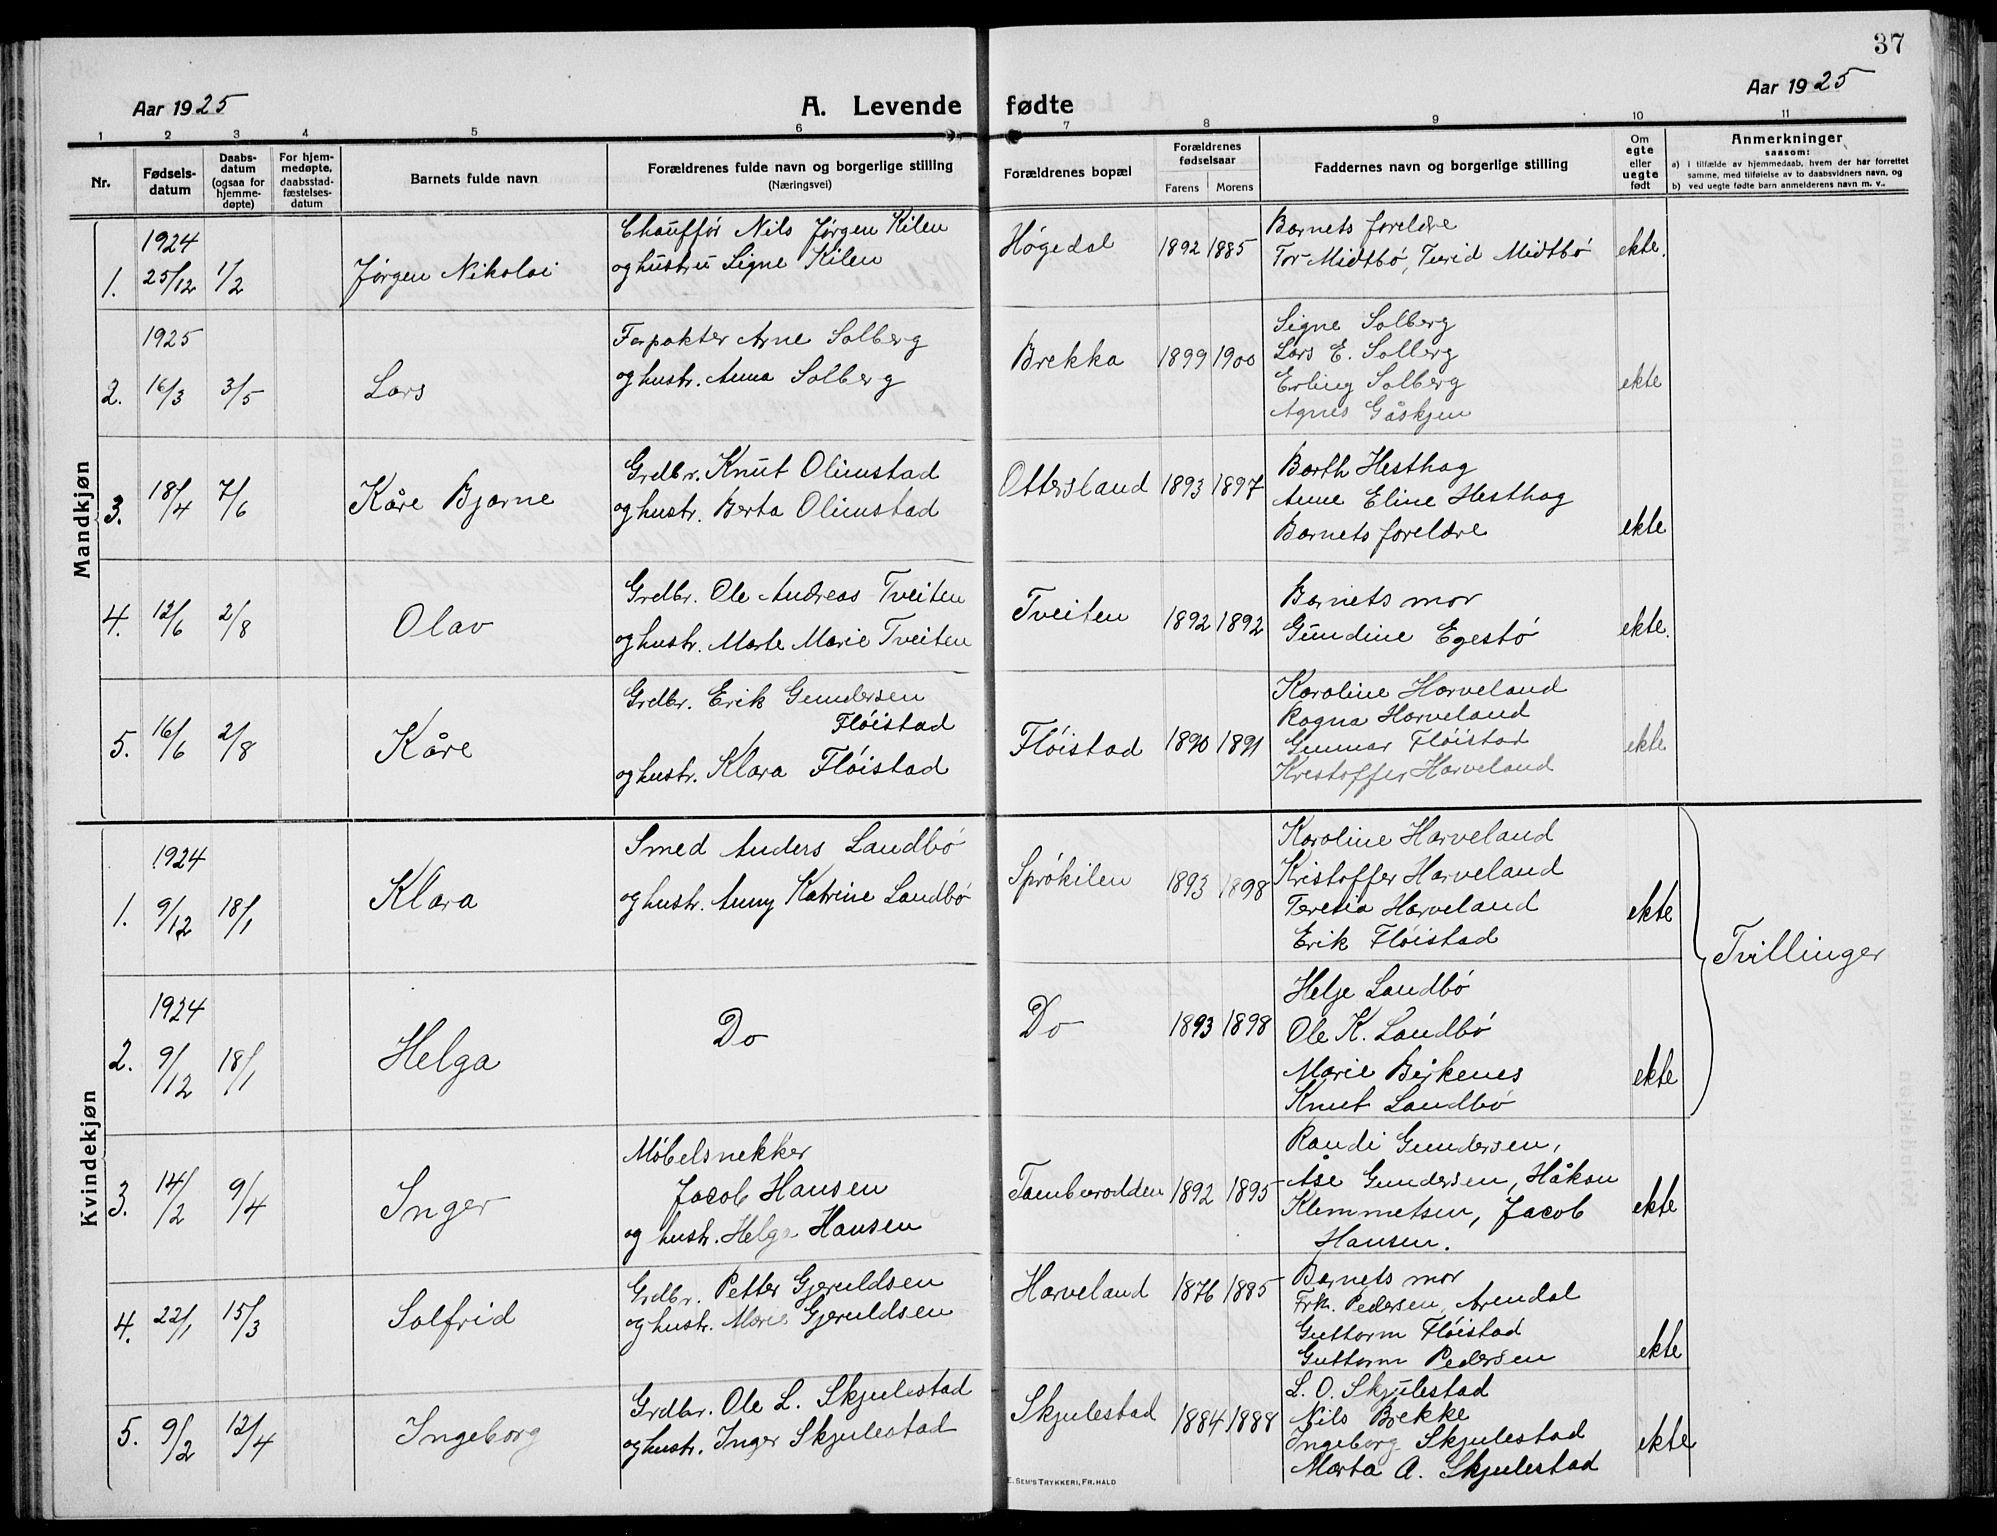 37
Aar 1925
A. Levende fødte
Aar 1925
1 2 3 4 5 6 7 8 9 10 11
Nr.
Fødsels-
datum
Daabs-
datum
(ogsaa for
hjemme-
døpte)
For hjem-
medøpte,
daabsstad-
fæstelses-
datum
Barnets fulde navn
Forældrenes fulde navn og borgerlige stilling
(Næringsvei)
Forældrenes bopæl
Forældrenes
fødselsaar
Farens Morens
Faddernes navn og borgerlige stilling
Om
egte
eller
uegte
født
Anmerkninger
saasom:
a) i tilfælde av hjemmedaab, hvem der har forrettet
samme, med tilføielse av to daabsvidners navn, og
b) ved uegte fødte barn anmelderens navn m. v..
Mandkjøn
1924
1. 25/12 1/2 Jørgen Nikolai
Chauffør Nils Jørgen Kilen
og hustru Signe Kilen
Høgedal 1892 1885
Barnets foreldre
Tor Midtbö, Turid Midtbö
ekte.
1925
2. 16/3 3/5 Lars
Forpakter Arne Solberg
og hustr. Anna Solberg
Brekka 1899 1900
Signe Solberg
Lars E. Solberg
Erling Solberg
Agnes Gåskjen
ekte
3. 18/4 7/6 Kåre Bjarne
Grdbr. Knut Olimstad
og hustr. Berta Olimstad
Ottersland 1893 1897
Barth Hesthag
Anne Eline Hesthag
Barnets foreldre
ekte
4. 12/6 2/8 Olav
Grdbr. Ole Andreas Tveiten
og hustr. Marte Marie Tveiten
Tveiten 1892 1892
Barnets mor
Gundine Egestö
ekte.
5. 16/6 2/8 Kåre
Grdbr. Erik Gundersen
Flöistad
og hustr. Klara Flöistad
Flöistad 1890 1891
Karoline Harveland
Ragna Harveland
Gunnar Flöistad
Kristoffer Harveland
ekte
Kvindekjøn
1924
1. 9/12 18/1 Klara
Smed Anders Landbö
og hustr. Anny Katrine Landbö
Sprökilen 1893 1898
Karoline Harveland
Kristoffer Harveland
Teresia Harveland
Erik Flöistad
ekte
Tvillinger
1924
2. 9/12 18/1 Helga
Do
Do 1893 1898
Helje Landbö
Ole K. Landbö
Marie Birkenes
Knut Landbö
ekte
3. 14/2 9/4 Inger
Møbelsnekker
Jacob Hansen
og hustr. Helga Hansen
1892 1895
Randi Gundersen,
Åse Gundersen, Håkon
Klemmetsen, Jacob
Hansen.
ekte
4. 22/1 15/3 Solfrid
Grdbr. Petter Gjeruldsen
og hustr. Marie Gjeruldsen
Harveland 1876 1885
Barnets mor
Frk. Pedersen, Arendal
Guttorm Flöistad
Guttorm Pedersen
ekte
5. 9/2 12/4 Ingeborg
Grdbr. Ole L. Skjulestad
og hustr. Inger Skjulestad
Skjulestad 1884 1888
L. O. Skjulestad
Nils Brekke
Ingeborg Skjulestad
Marta A. Skjulestad
ekte
E. SEM'S TRYKKERI, FR.HALD